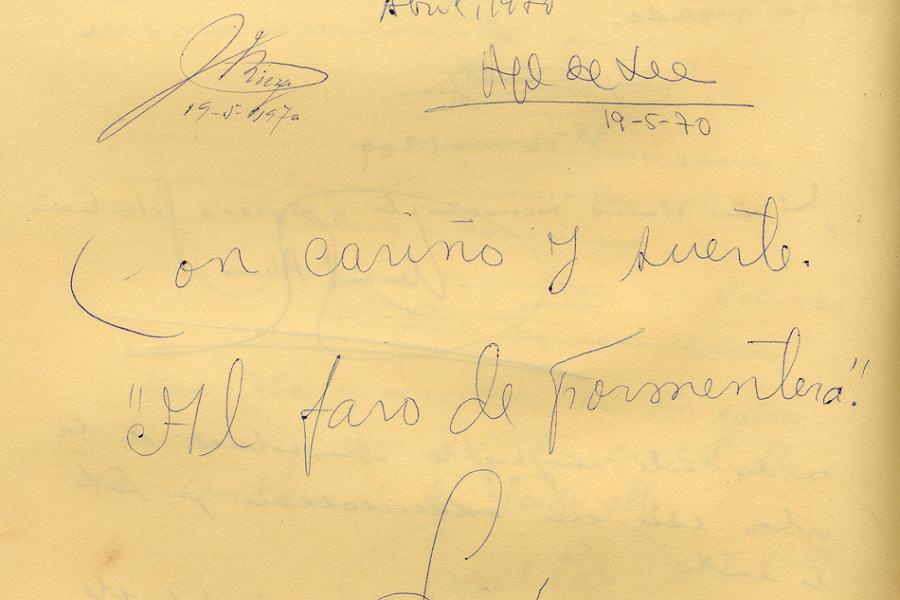 Abril, 1970
J. Riera
19-5-1970
19-5-70
Con cariño y suerte.
"Al faro de Formentera".